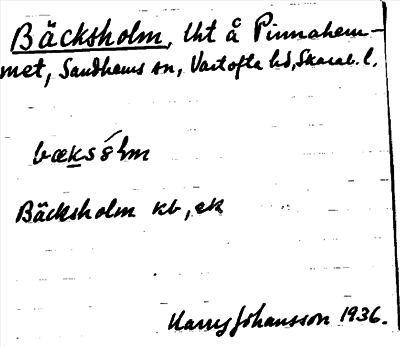 Bäcksholm, lht å Pinnahem-
met, Sandhems sn, Vartofta hd, Skarab. l.
bæksòlm
Bäcksholm kb, ek
Harry Johansson 1936.